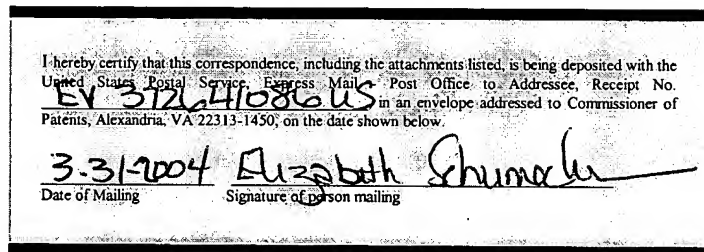 I hereby certify that this correspondence, including the attachments listed, is being deposited with the
United States Postal Service, Express Mail - Post Office to Addressee, Receipt No.
EV 372641086 US in an envelope addressed to Commissioner of
Patents, Alexandria, VA 22313-1450, on the date shown below.
3-31-2004 Elizabeth Schumacher
Date of Mailing Signature of person mailing